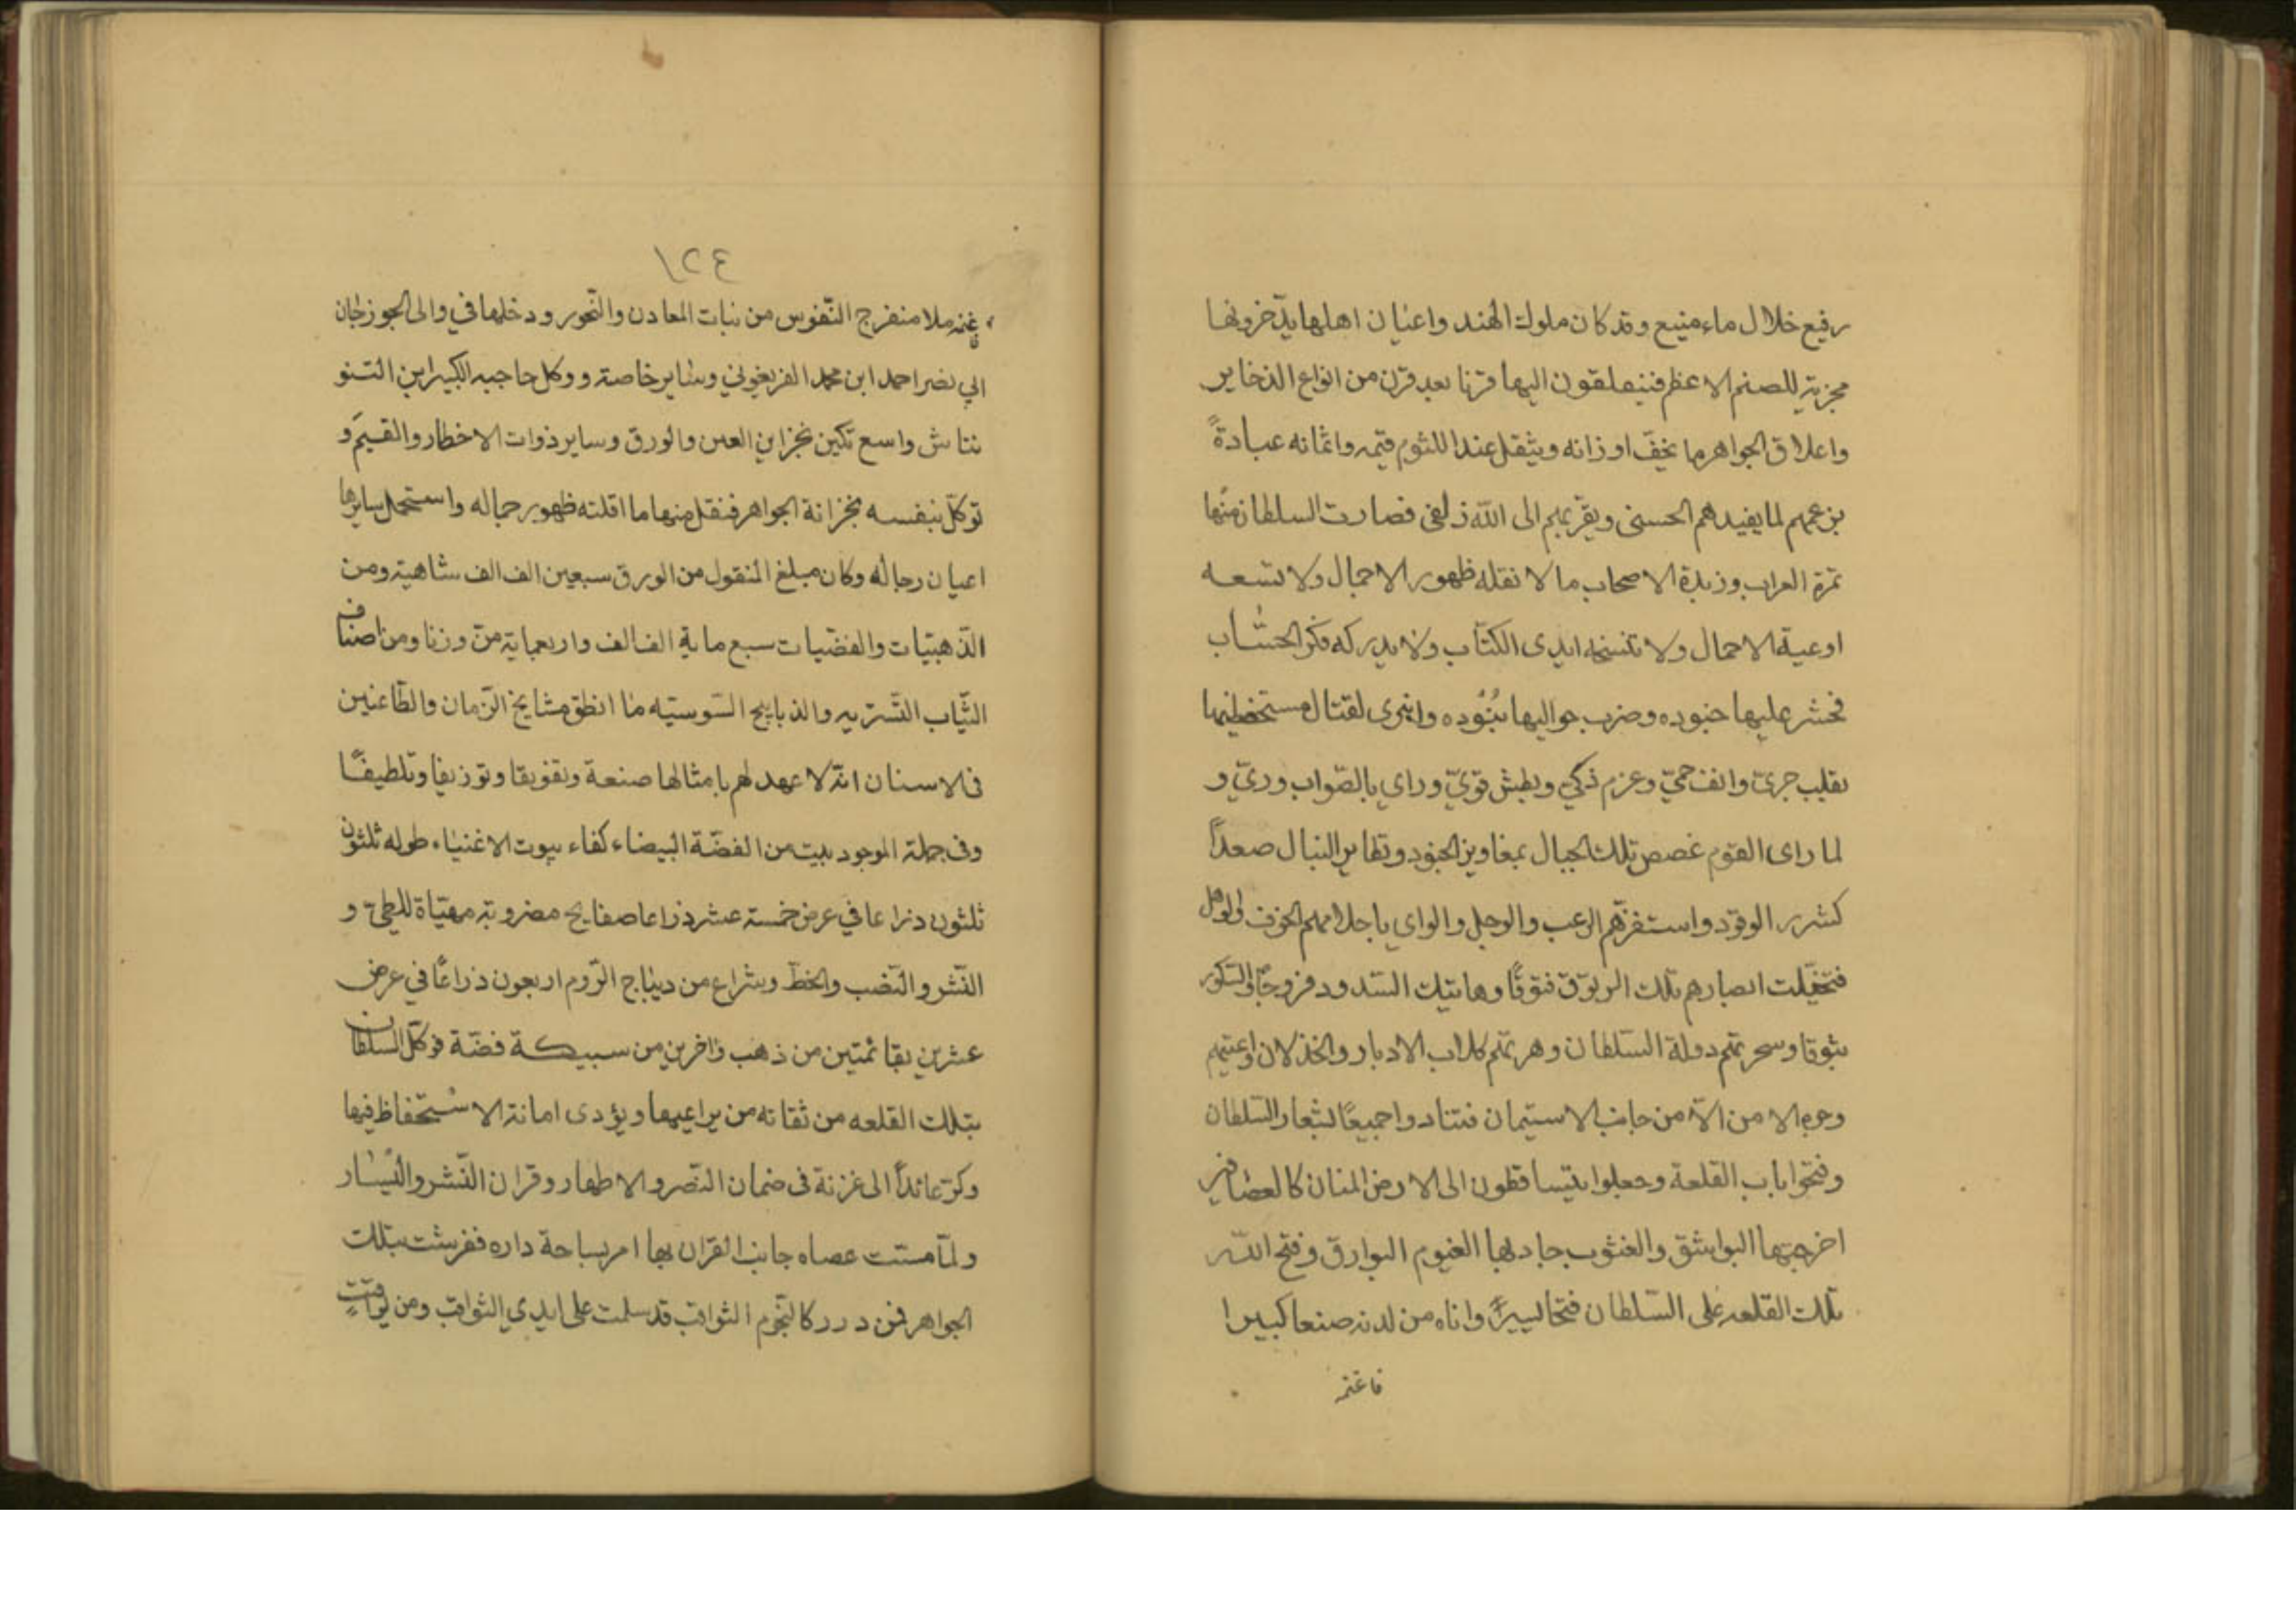 رفيع خلال ماء منيع وقد كان ملوك الهند واعيان اهلها يدّخرونها
مجزية للصنم الاعظم فينقلون اليها قرنا بعد قرن من انواع الذخاير
واعلاق الجواهر ما يخفّ اوزانه ويثقل عند اللثوم قيمه واثمانه عبادةً
بزعمهم لما يفيدهم الحسنى ويقربهم الى الله زلفى فصارت السلطان منها
ثمرة العراب وزبدة الاصحاب ما لا نقله ظهور الاجمال ولا تسعه
اوعية الاحمال ولا تنسخه ايدى الكتّاب ولا يدركه فكر الحسّاب
فحشر عليها جنوده وضرب حواليها بنُوده وانبرى لقتال مستحفظيها
بقلب جرىّ وانف حمىّ وعزم ذكىّ وبطش قوىّ وراي بالصّواب ورىّ و
لما راى القوم غصص تلك الجبال بمغاويز الجنود وتطاير النبال صعداً
كشرر الوقود واستفزّهم الرعب والوجل والواى باحلامهم الخوف والوهل
فتخيّلت ابصارهم تلك الربوق فتوقًا وهاتيك السدود فروجًا والسكور
بثوقا وسحرتهم دولة السّلطان وهرتهم كلاب الادبار والخذلان واعيتهم
وجوه الامن الّا من جانب الاستيمان فتنادوا جميعًا لشعار السّلطان
وفتحوا باب القلعة وجعلوا يتساقطون الى الارض المنان كالعصافير
اخرجتها البواشق والغثوب جادلها الغيوم البوارق وفتح اللّه
تلك القلعة على السّلطان فتحا يسيراً واتاه من لدنه صنعا كبيرا
فاغنمه
١٢٤
فاغنمه ملا منفرج النّفوس من نبات المعادن والنّحور ودخلها في والى الجوزجان
ابي نصر احمد ابن محمد الفريغوني وساير خاصته ووكل حاجبه الكبيرين التنو
نتاش واسع تكين بخزاين العين والورق وساير ذوات الاخطار والقيَم و
توكّل بنفسه بخزانة الجواهر فنقل منها ما اقلته ظهور جماله واستحمل سايرها
اعيان رجاله وكان مبلغ المنقول من الورق سبعين الف الف شاهية ومن
الذّهبيّات والفضّيات سبع ماية الف الف واربعماية منّ وزنا ومن اصناف
الثّياب التّستريه والذبابيح السّوسيّه ما انطق مشايخ الزّمان والطّاعنين
فى الاسنان انّه لا عهد لهم بامثالها صنعة وتفويقا وتوزيفا وتلطيفًا
وفى جملة الموجود بيت من الفضّة البيضاء كفاء بيوت الاغنياء طوله ثلثون
ثلثون ذراعا في عرض خمسة عشر ذراعا صفايح مضروبة مهيّاة للطىّ و
النّشر والنّضب والخطّ وشراع من ديباج الرّوم اربعون ذراعًا في عرض
عشرين بقائمتين من ذهب واخرين من سبيكة فضّة فوكّل السلطان
بتلك القلعه من ثقاته من يراعيها ويؤدى امانة الاستحفاظ فيها
وكرّ عائداً الى غزنة فى ضمان النّصر والاطهار وقران النّشر واليسار
ولمّا مسّت عصاه جانب القران بها امر بساحة داره ففرشت بتلك
الجواهر فمن درر كالنّجوم الثواقب قد سلمت على ايدي الثواقب ومن يواقيت